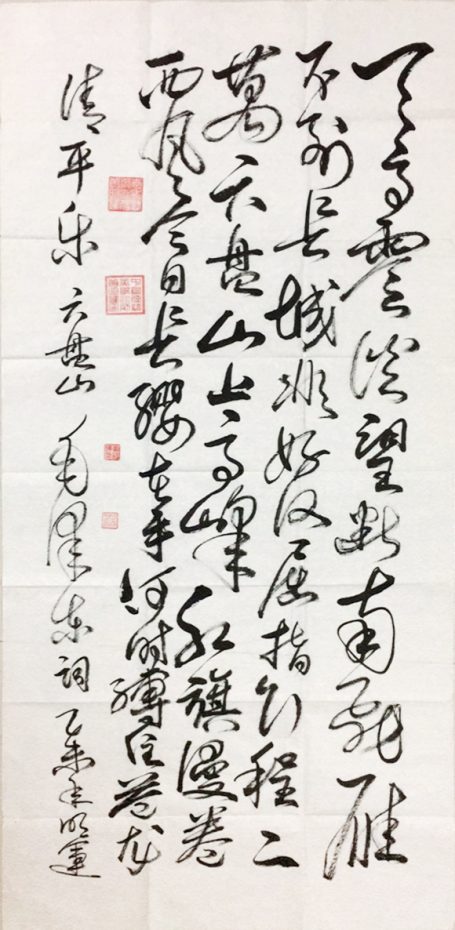 天高雲淡望断南飛雁
不到长城非好汉屈指行程二
萬六盘山上高峰红旗漫卷
西风今日长缨在手何时缚住苍龙
清平乐六盘山毛泽东词乙未年明運